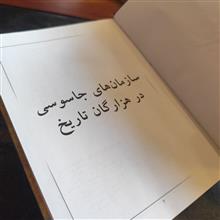 سازمان‌های جاسوسی
در هزارگان تاریخ